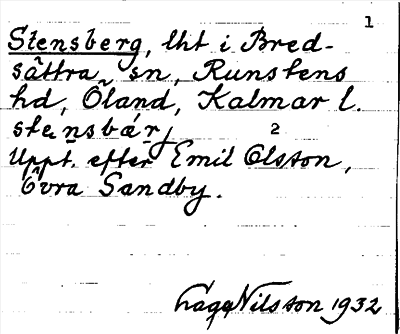 1
Stensberg, lht i Bred-
sättra sn, Runstens
hd, Öland, Kalmar l.
stensbárj
2
Uppt. efter Emil Olsson,
Övra Sandby.
Lage Nilsson 1932